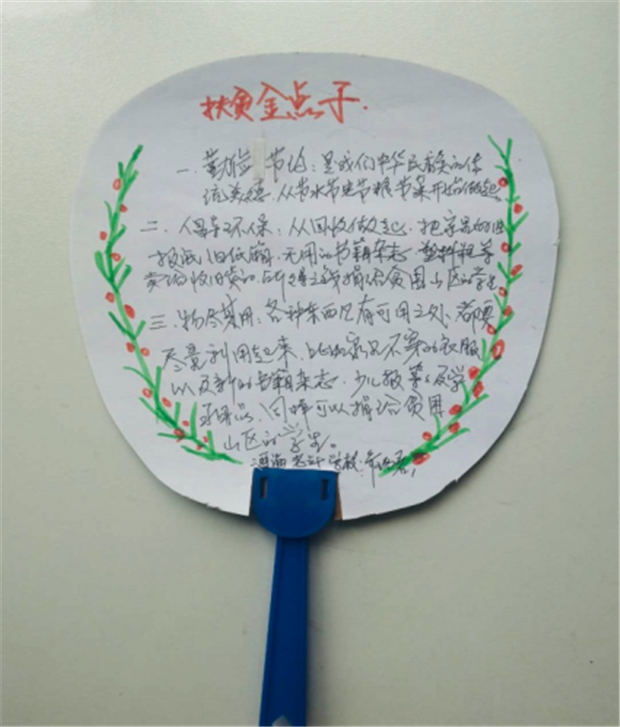 扶贫金点子.
一.勤俭节约:是我们中华民族的传
统美德.从节水节电节粮节菜开始做起.
二.倡导环保:从回收做起.把家里的旧
报纸.旧纸箱.无用的书籍杂志.塑料瓶等
卖给收旧货的.所得之钱捐给贫困山区的学生
三.物尽其用:各种东西凡有可用之处.都要
尽量利用起来.比如家里不穿的衣服
以及新的书籍杂志.少儿报等以及学
习用品.同样可以捐给贫困
山区的学生。
学校